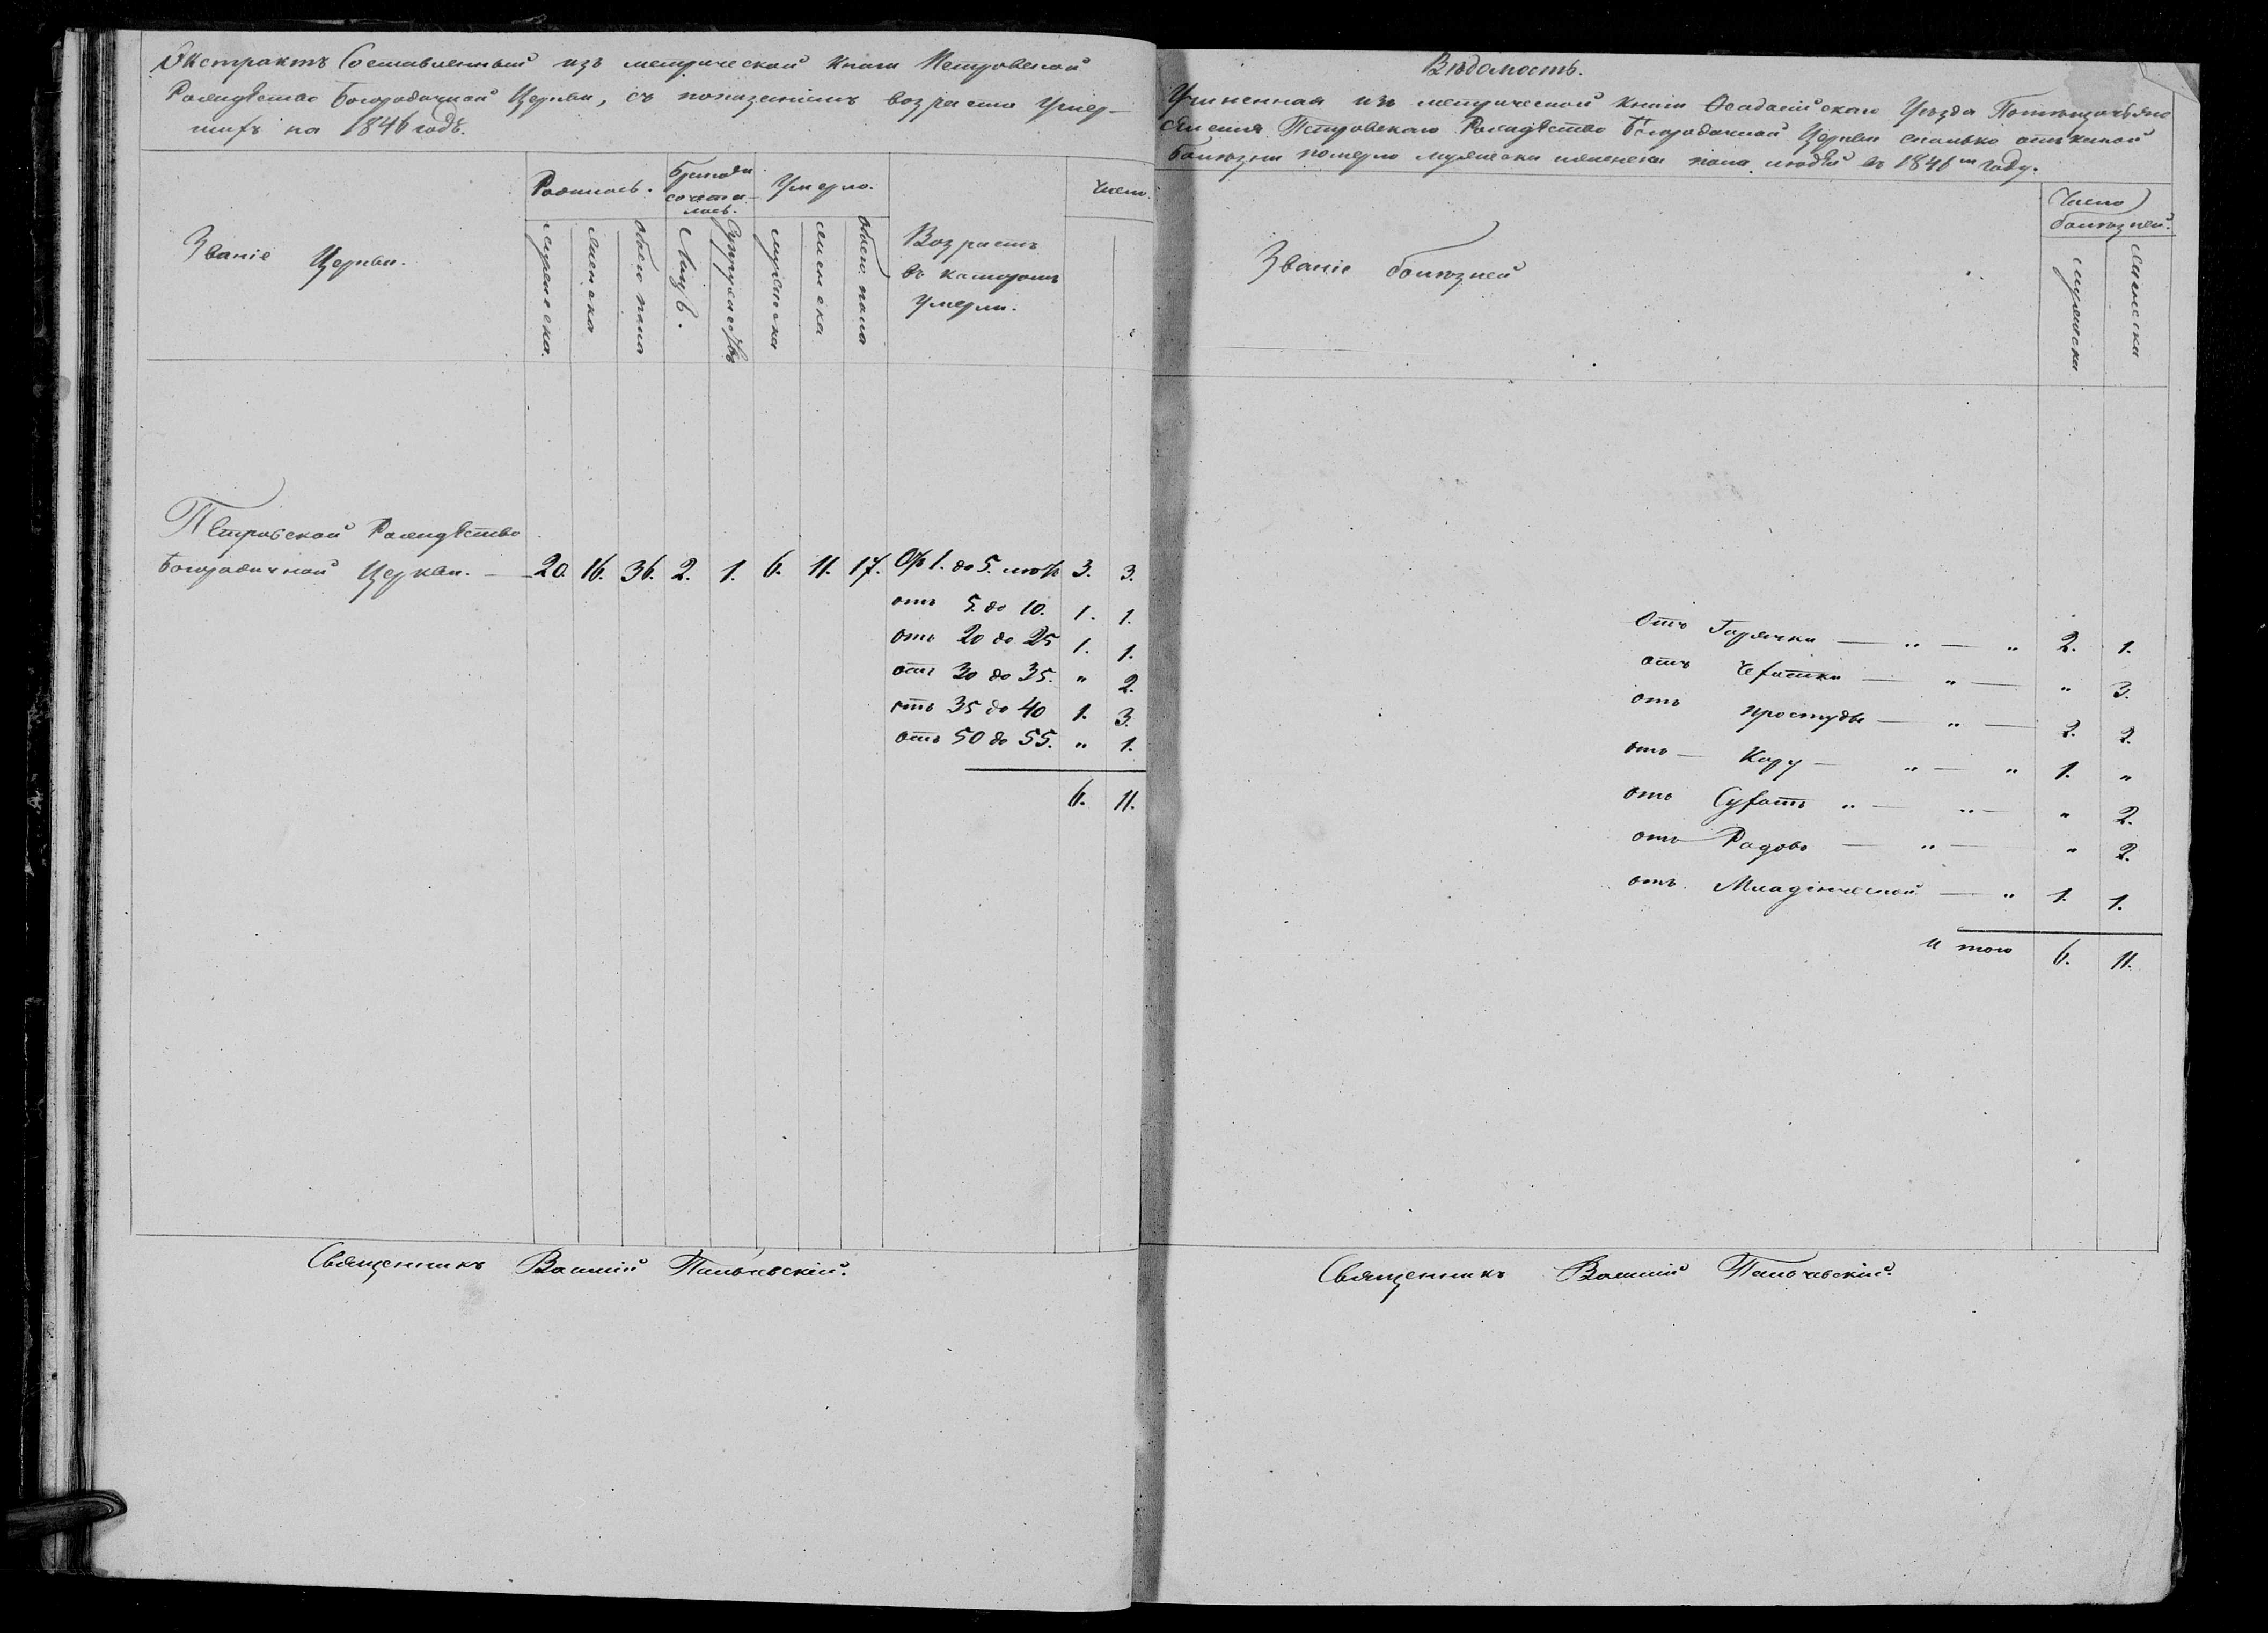 Экстрактъ Составленный изъ метрической книги Петровской
Рождѣство Богородичной Церкви, съ показаніемъ возраста Умер-
шихъ на 1846 годъ.
Званіе Церкви.
Родилось.
Бракомъ сочета-
лось.
Умерло.
Возрастъ
въ которомъ
умерли.
Число.
мужеска.
женска
обоего пола
Лицъ.
Супружествъ
мужеска
женска
обоего пола
Петровской Рождѣство
Богородичной Церкви. — 20. 16. 36. 2. 1. 6. 11. 17. Отъ 1. до 5. лѣтъ 3. 3.
отъ 5. до 10. 1. 1.
отъ 20 до 25 1. 1.
отъ 30 до 35. " 2.
отъ 35 до 40 1. 3.
отъ 50 до 55. " 1.
6. 11.
Священникъ Василій
Вѣдомость.
Учиненная изъ метрической книги Феодосійскаго Уѣзда
селенія Петровскаго Рождѣство Богородичной Церкви сколько отъ какой
болѣзни померло мужеска и женска пола людей въ 1846м году.
Званіе болѣзней
Число
болѣзней.
мужеска
женска
Отъ Горячки — " — " 2. 1.
отъ Чехотки — " — " 3.
отъ простуды — " — 2. 2.
отъ — Кору — " — " 1. "
отъ Сухотъ " — " — " 2.
отъ Родовъ — " — " 2.
отъ Младенческой — " 1. 1.
и того 6. 11.
Священникъ Василій